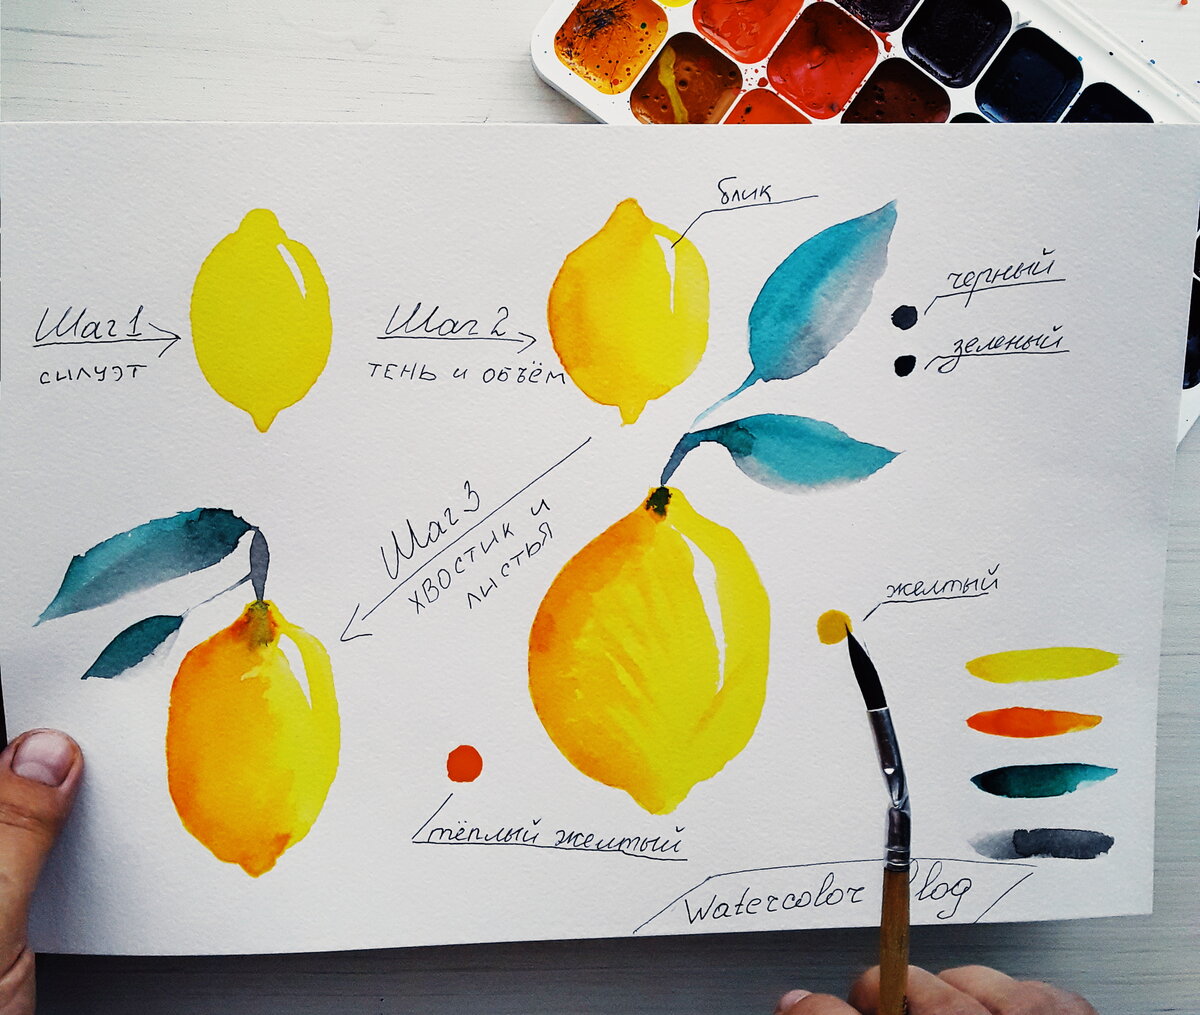 блик
черный
зеленый
Шаг 1
силуэт
Шаг 2
тень и объём
Шаг 3
хвостик и
листья
желтый
тёплый желтый
Watercolor blog